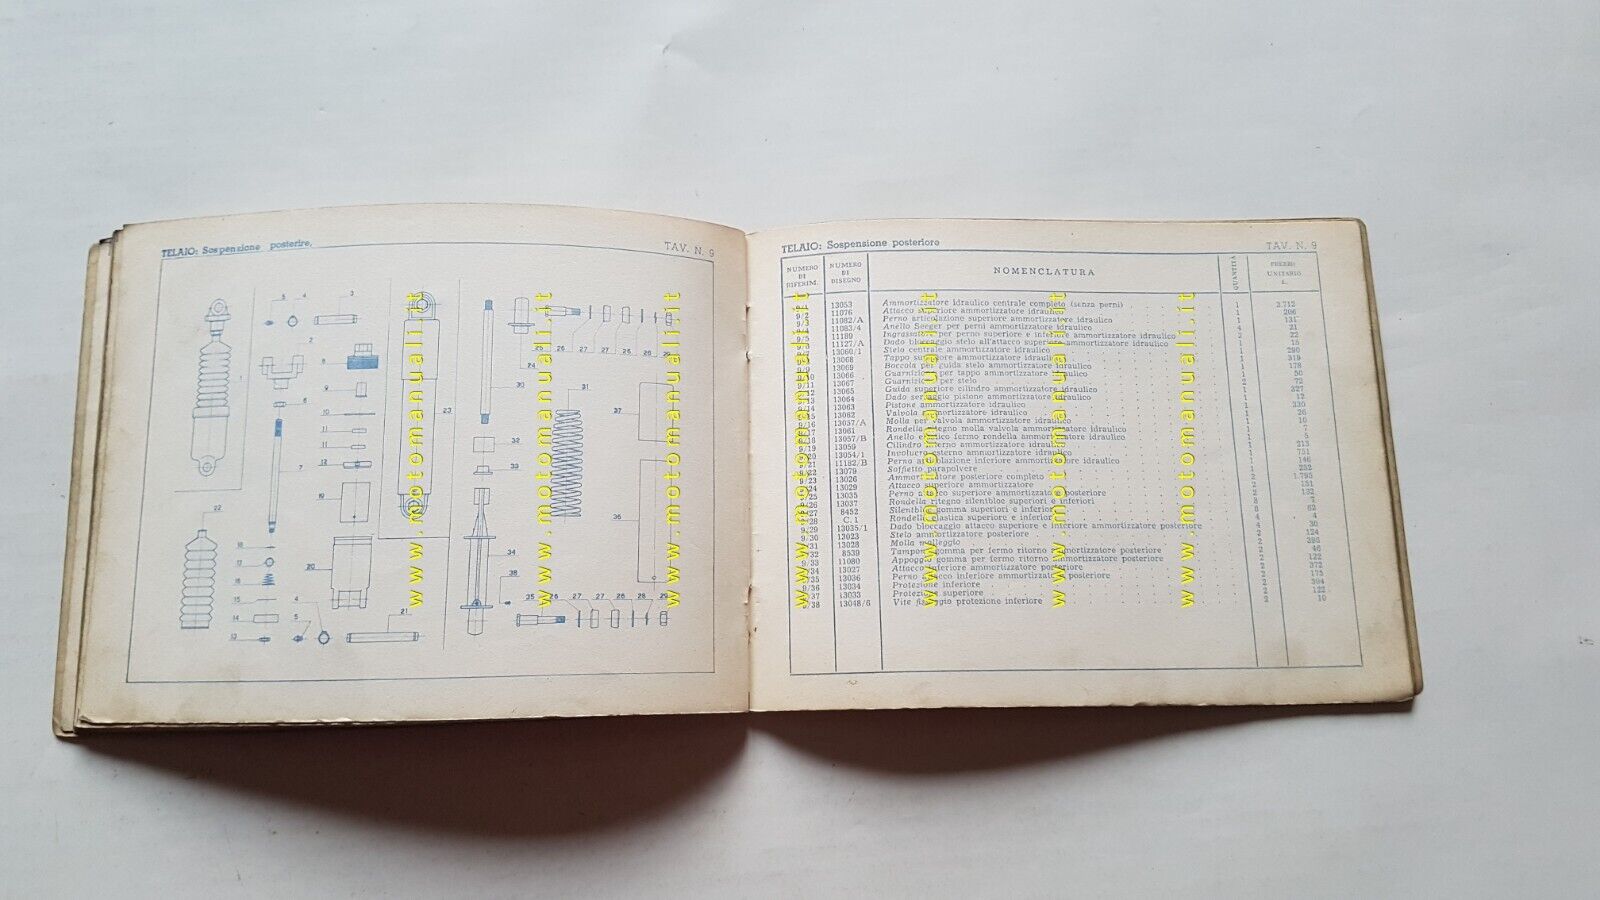 TELAIO: Sospensione posterire,
TAV. N. 9
5 4 3
2
8
6
9
10
11
11
12
7
19
22
18
17
16
15
14
13
20
4
5
21
23
24
25 26 27 27 26 28 29
30
31
32
33
34
38
37
36
35 26 27 26 28 29
TELAIO: Sospensione posteriore
TAV. N. 9
NUMERO DI RIFERIM.
NUMERO DI DISEGNO
NOMENCLATURA
QUANTITÀ
PREZZO UNITARIO L.
9/1 13053 Ammortizzatore idraulico centrale completo (senza perni) 1 3.712
9/2 11076 Attacco superiore ammortizzatore idraulico 1 206
9/3 11082/A Perno articolazione superiore ammortizzatore idraulico 1 131
11083/4 Anello Seeger per perni ammortizzatore idraulico 4 21
9/5 11189 Ingrassatori per perno superiore e inferiore ammortizzatore idraulico 2 22
11127/A Dado bloccaggio stelo all'attacco superiore ammortizzatore idraulico 1 15
13060/1 Stelo centrale ammortizzatore idraulico 1 290
13068 Tappo superiore ammortizzatore idraulico 1 319
9/9 13069 Boccola per guida stelo ammortizzatore idraulico 1 178
9/10 13066 Guarnizione per tappo ammortizzatore idraulico 1 50
9/11 13067 Guarnizione per stelo 2 72
9/12 13065 Guida superiore cilindro ammortizzatore idraulico 1 327
9/13 13064 Dado serraggio pistone ammortizzatore idraulico 1 12
9/14 13063 Pistone ammortizzatore idraulico 1 330
9/15 13062 Valvola ammortizzatore idraulico 1 26
9/16 13037/A Molla per valvola ammortizzatore idraulico 1 10
9/17 13061 Rondella ritegno molla valvola ammortizzatore idraulico 1 7
9/18 13057/B Anello elastico fermo rondella ammortizzatore idraulico 1 5
9/19 13059 Cilindro interno ammortizzatore idraulico 1 213
9/20 13054/1 Involucro esterno ammortizzatore idraulico 1 751
9/21 11182/B Perno articolazione inferiore ammortizzatore idraulico 1 146
9/22 13079 Soffietto parapolvere 1 252
9/23 13026 Ammortizzatore posteriore completo 2 1.795
9/24 13029 Attacco superiore ammortizzatore 2 151
9/25 13035 Perno attacco superiore ammortizzatore posteriore 2 132
9/26 13037 Rondella ritegno silentbloc superiori e inferiori 8 7
9/27 8452 Silentbloc gomma superiori e inferiori 8 62
9/28 C. 1 Rondella elastica superiore e inferiore 4 4
9/29 13035/1 Dado bloccaggio attacco superiore e inferiore ammortizzatore posteriore 4 30
9/30 13023 Stelo ammortizzatore posteriore 2 124
9/31 13028 Molla molleggio 2 396
9/32 8539 Tampone gomma per fermo ritorno ammortizzatore posteriore 2 46
9/33 11080 Appoggio gomma per fermo ritorno ammortizzatore posteriore 2 122
9/34 13027 Attacco inferiore ammortizzatore posteriore 2 372
9/35 13036 Perno attacco inferiore ammortizzatore posteriore 2 175
9/36 13034 Protezione inferiore 2 394
9/37 13033 Protezione superiore 2 122
9/38 13048/6 Vite fissaggio protezione inferiore 2 10
www.motomanuali.it
www.motomanuali.it
www.motomanuali.it
www.motomanuali.it
www.motomanuali.it
www.motomanuali.it
www.motomanuali.it